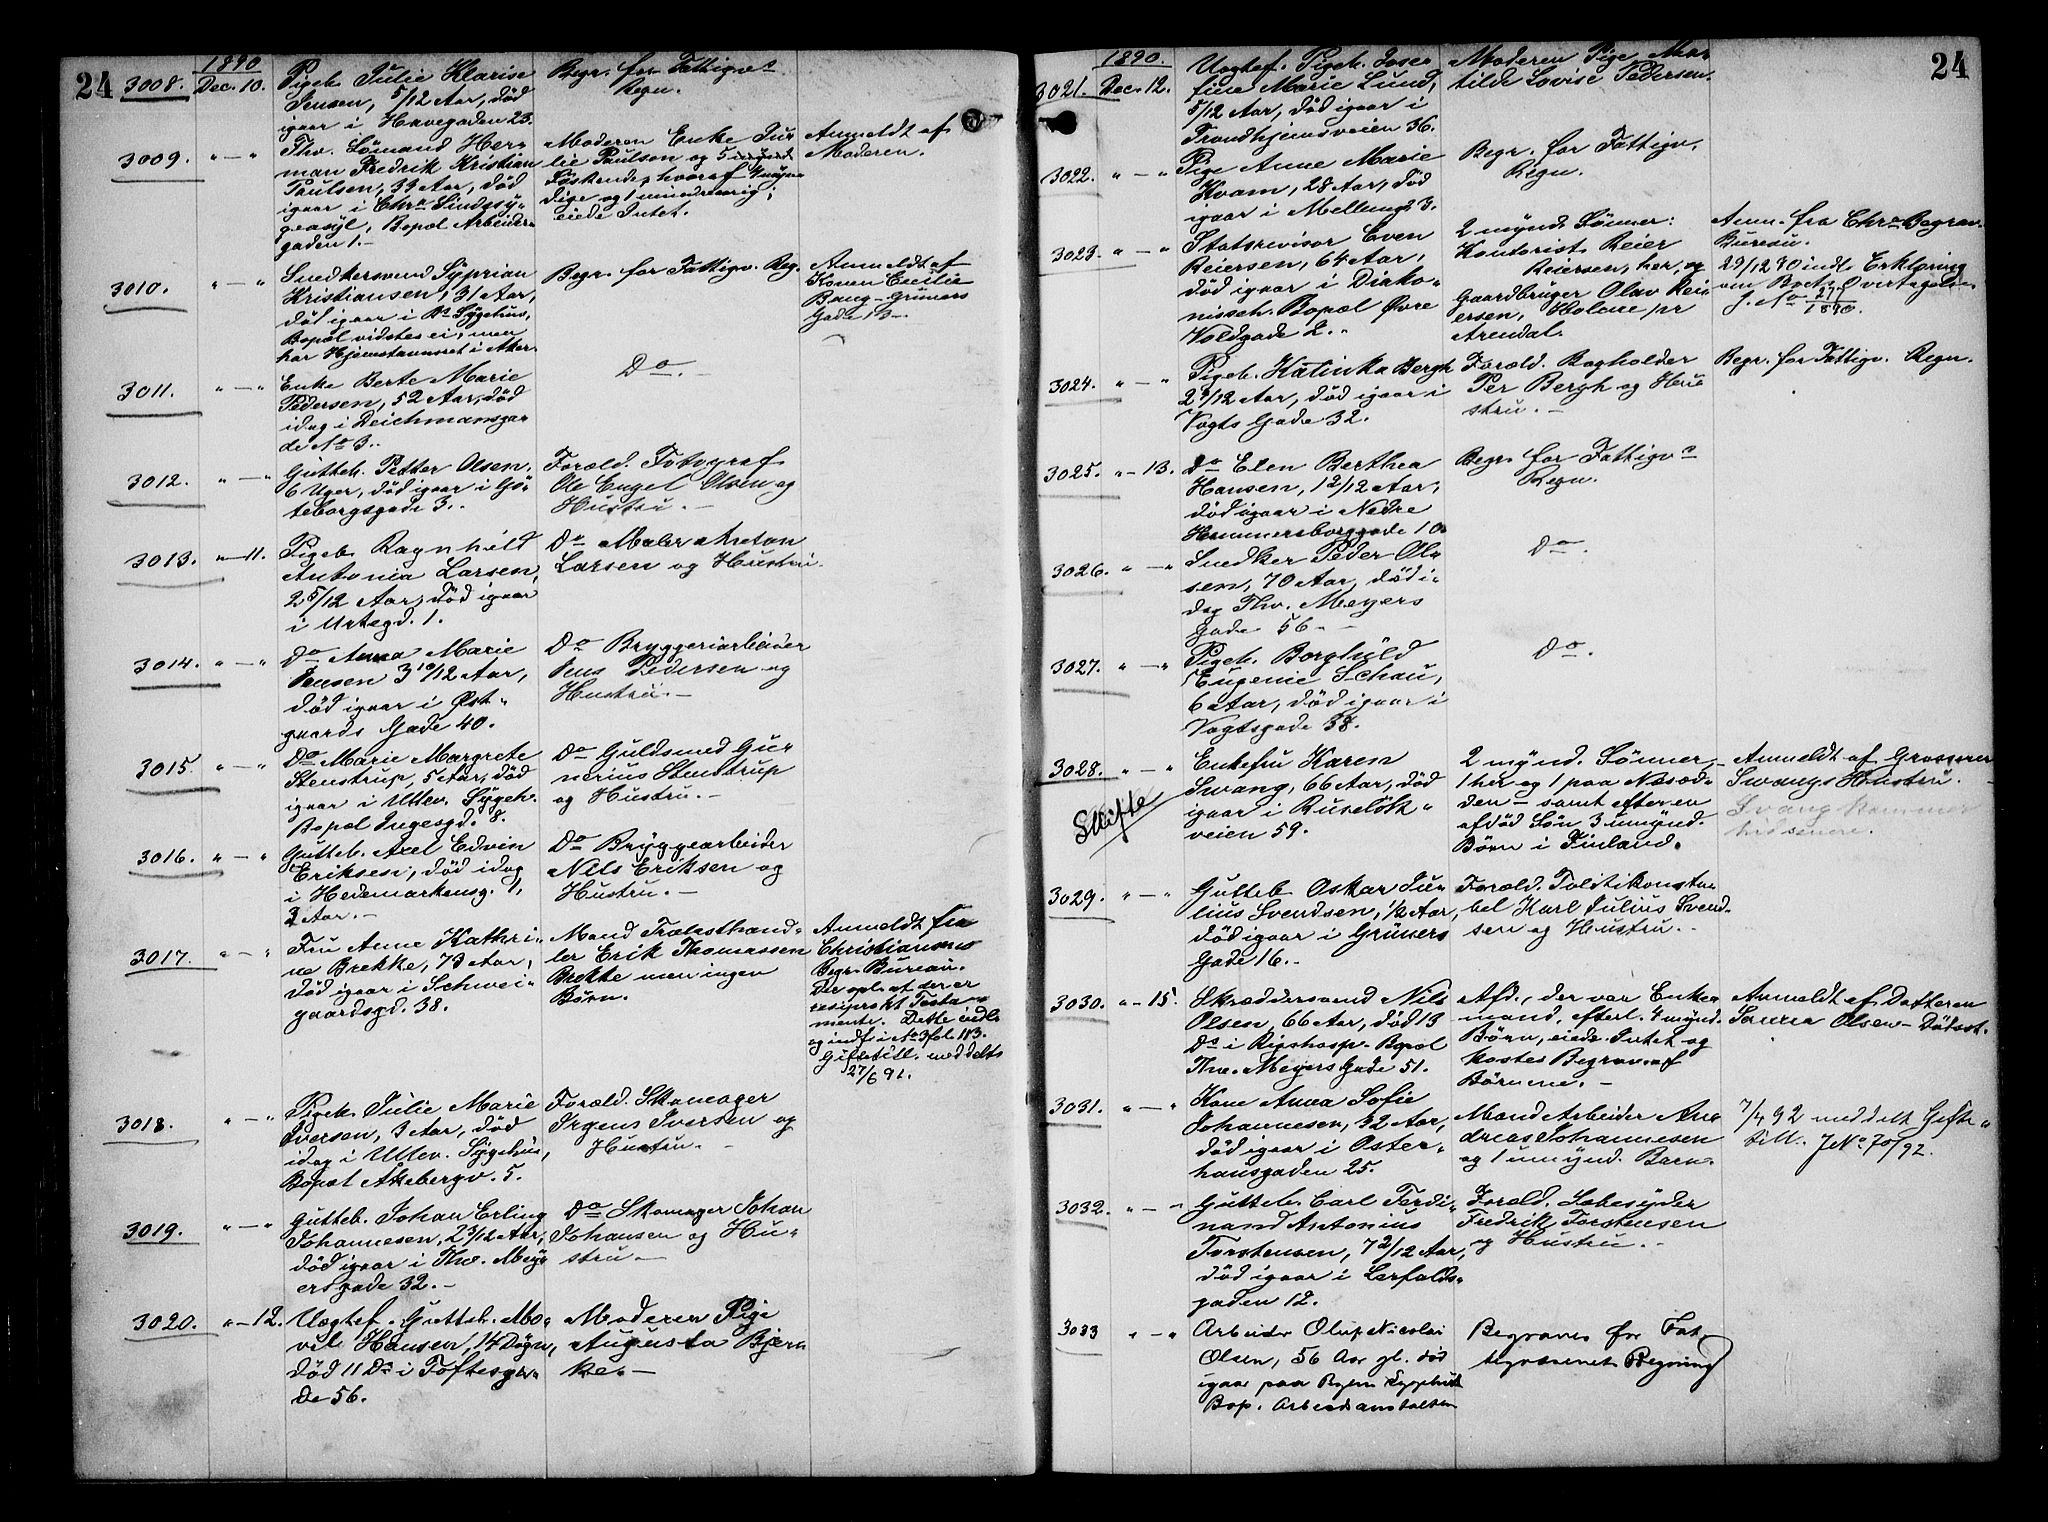 24
1890
3008. Dec. 10. Pigeb. Julie Klarise
Jensen, 5/12 Aar, död
igaar i Havegaden 23.
Begr. for Fattigvs
Regn.
3009. " — " Thv. Sömand Her-
man Fredrik Kristian
Paulsen, 39 Aar, död
igaar i Chra Sindssy-
geasyl, Bopæl Arbeider-
gaden 1.—
Moderen Enke Ju-
lie Paulsen og 5
Söskende, hvoraf 4 myn-
dige og 1 mindreaarig;
eiede Intet.
Anmeldt af
Moderen.
3010. " — " Snedkersvend Syprian
Kristiansen, 31 Aar,
död igaar i Bs Sygehus,
Bopæl vidstes ei, men
har Hjemstavnsret i Aker.
Begr. for Fattigv. Reg.
Anmeldt af
Konen Cecilie
Bang - Grüners
Gade 13.—
3011. " — " Enke Berte Marie
Pedersen, 52 Aar, död
idag i Deichmansga-
de No 3..
Do.—
3012. " — " Gutteb. Petter Olsen,
6 Uger, död igaar i Gö-
teborgsgade 3..
Foræld. Fotograf
Ole Engel Olsen og
Hustru.—
3013. " — 11. Pigeb. Ragnhild
Antonia Larsen,
2 5/12 Aar, död igaar
i Urtegd. 1.
Do Maler Anton
Larsen og Hustru.
3014. " — " Do Anna Marie
Jensen 3 10/12 Aar,
död igaar i Øst-
gaards Gade 40.
Do Bryggeriarbeider
Jens Pedersen og
Hustru.—
3015. " — " Do Marie Margrete
Stenstrup, 5 Aar, död
igaar i Ullev. Sygeh.
Bopæl Ingesgd. 8.
Do Guldsmed Gun-
nerius Stenstrup
og Hustru.—
3016. " — " Gutteb. Axel Edvin
Eriksen, död idag
i Hedemarkensg. 1,
3 Aar.—
Do Bryggearbeider
Nils Eriksen og
Hustru.—
3017. " — " Fru Anne Kathri-
ne Brekke, 73 Aar,
död igaar i Schwei-
gaardsgd. 38.
Mand Trælasthand-
ler Erik Thomassen
Brekke men ingen
Börn.
Anmeldt fra
Christiania
Begr. Bureau.
Der opl. at der er
resiprokt Testa-
mente. Dette indl.
og indf. i No 3 fol. 113.
Giftetill. meddelt
27/6 91.
3018. " — " Pigeb. Julie Marie
Iversen, 3 Aar, död
idag i Ullev. Sygehus,
Bopæl Åkebergv. 5.
Foræld. Skomager
Jrgens Iversen og
Hustru.—
3019. " — " Gutteb. Johan Erling
Johannesen, 2 3/12 Aar,
död igaar i Thv. Mey-
ersgade 32.—
Do Skomager Johan
Johansen og Hu-
stru.—
3020. " — 12. Uægtef. Gutteb.
Hansen, 14 Dögn,
död 11 Ds i Toftesga-
de 56.
Moderen Pige
Augusta Bjern
ke.—
24
1890.
3021. Dec. 12. Uægtef. Pigeb. Jose-
fine Marie Lund,
5/12 Aar, död igaar i
Trondhjemsveien 36.
Moderen Pige Ma-
tilde Lovise Pedersen.
3022. " — " Pige Anne Marie
Kvam, 28 Aar, död
igaar i Mellemg. 3.
Begr. for Fattigv.
Regn.
3023. " — " Statsrevisor Even
Reiersen, 64 Aar,
död igaar i Diako-
nissch. Bopæl Øvre
Voldgade 2..
2 mynd. Sönner:
Kontorist Reier
Reiersen, her, og
Gaardbruger Olav Rei-
ersen, Holene pr
Arendal.
Anm. fra Chra Begrav.
Bureau.
29/12 90 indl. Erklæring
om Boets Overtagelse
J. No 277/1890.
3024. " — " Pigeb. Katinka Bergh
2 9/12 Aar, död igaar i
Vogts Gade 32.
Foræld. Bogholder
Per Bergh og Hu-
stru.—
Begr. for Fattigv. Regn.
3025. " — 13. Do Elen Berthea
Hansen, 1 2/12 Aar,
död igaar i Nedre
Hammersborggade 10.
Begr. for Fattigvs
Regn.
3026. " — " Snedker Peder Ol-
sen, 70 Aar, död i-
dag Thv. Meyers
Gade 56.—
Do.
3027. " — " Pigeb. Borghild
Eugenie Schau,
6 Aar, död igaar i
Vogtsgade 38.
Do.
3028. " — " Enkefru Karen
Swang, 66 Aar, död
igaar i Ruselök-
veien 59.
Skifte
2 mynd. Sönner,
1 her og 1 paa Næsod-
den — samt efter en
afdöd Sön 3 umynd.
Börn i Finland.
Anmeldt af Grosserer
Swangs Hustru.
Svang kommer
hid senere.
3029. " — " Gutteb. Oskar Ju-
lius Svendsen, 1/2 Aar,
död igaar i Grüners
Gade 16.—
Foræld. Politikonsta-
bel Karl Julius Svend-
sen og Hustru.—
3030. " — 15. Skræddersvend Nils
Olsen, 66 Aar, död 13
Ds i Rigshosp. Bopæl
Thv. Meyers Gade 51.
Afd., der var Enke-
mand, efterl. 4 mynd.
Börn, eiede Intet og
kostes Begrav. af
Börnene.—
Anmeldt af Datteren
Laura Olsen — Dödsat.
3031. " — " Kone Anna Sofie
Johannesen, 32 Aar,
död igaar i Oster-
hausgaden 25.
Mand Arbeider An-
dreas Johannesen
og 1 umynd. Barn.
7/4 92 meddelt Gifte-
till. JNo 70/92.
3032. " — " Gutteb. Carl Ferdi-
nand Antonius
Torstensen, 7 2/12 Aar,
död igaar i Lerfalds-
gaden 12.
Foræld. Sæbesyder
Fredrik Torstensen
og Hustru.—
3033 " — " Arbeider Oluf Nicolai
Olsen, 56 Aar gl. död
igaar paa Byens Sygehus
Bop. Arbeidsanstalten
Begraves for Fat-
tigvæsenets Regning